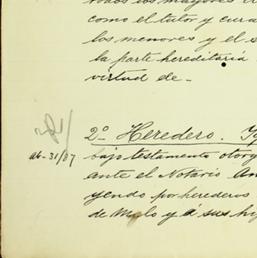 todos los mayores
como el tutor y cura
los menores y el s
la parte hereditaria
virtud de-
2º Heredero.
ab-31/07
bajo testamento otorg
ante el Notario An
yendo por herederos
de Malo y á sus hij